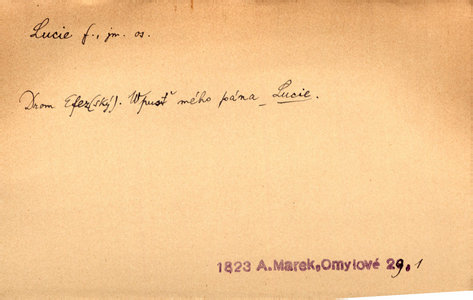 Lucie f., jm. os.
Drom Efez(ský). Wpusť mého pána _ Lucie.
1823 A. Marek, Omylové 29.1